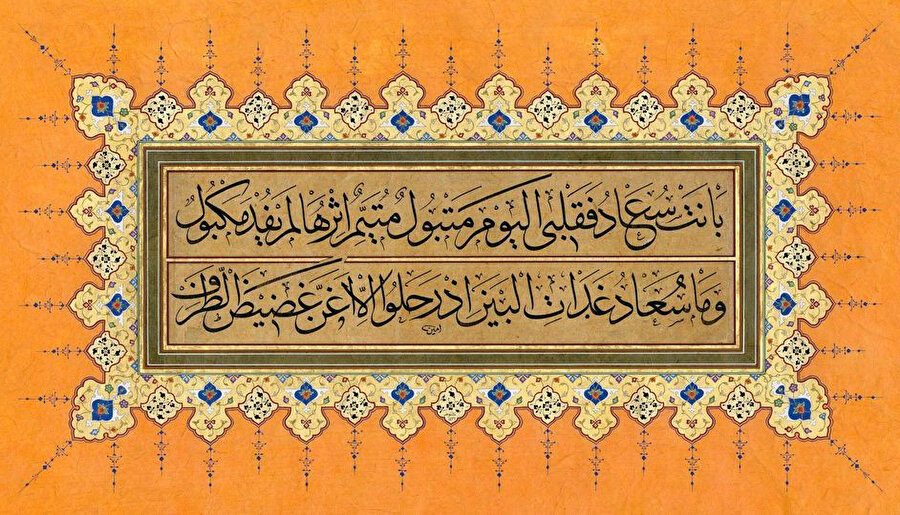 بانت سعاد فقلبى اليوم متبول متيم اثرها لم يفد مكبول
وما سعاد غدات البين اذ رحلوا الا اغن غضيض الطرف